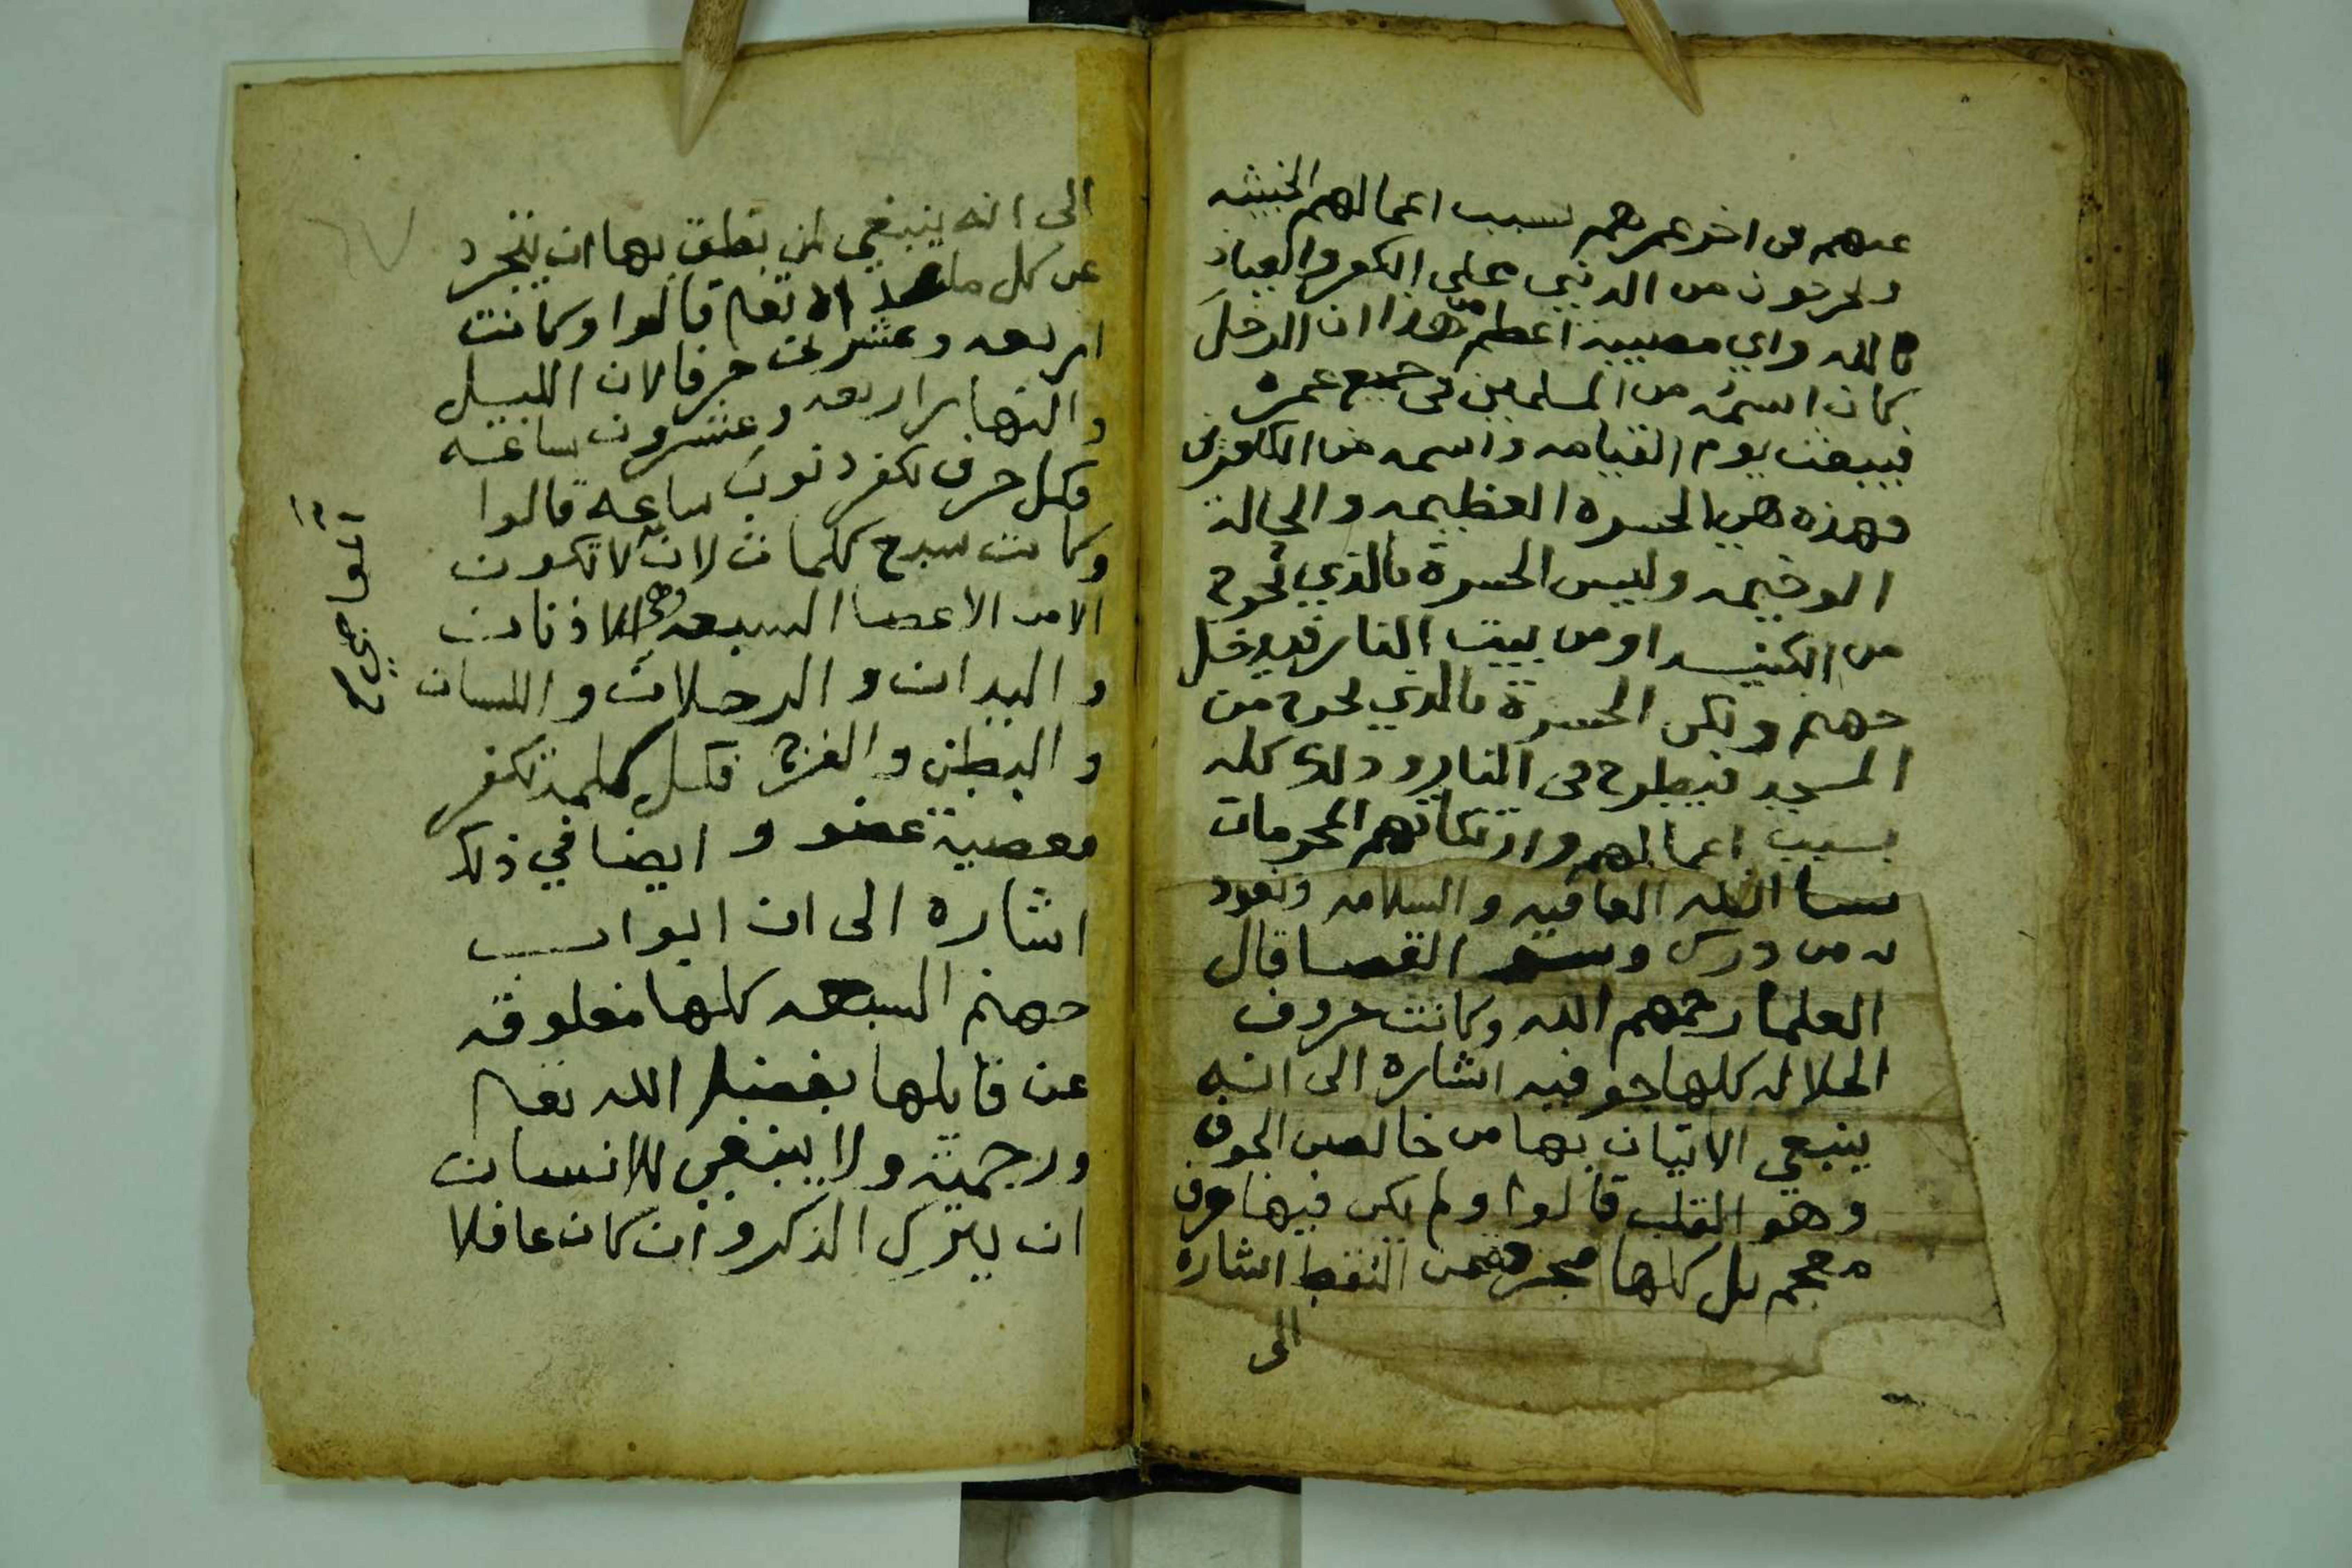 عنهم فى اخر عمرهم بسبب اعمالهم الخبيثه
ويخرجون من الدنيى على الكفر والعياذ
بالله واي مصيبة اعظم من هذا ان الرجل
كان اسمه من المسلمين فى جميع عمره
فيبعث يوم القيامه واسمه من الكافرين
فهذه هي الحسرة العظيمه والحالة
الوخيمه وليس الحسرة بالذي يخرج
من الكنيسه او من بيت النار فيدخل
جهنم ولكن الحسرة بالذي يخرج من
المسجد فيطرح فى النار وذلك كله
بسبب اعمالهم وارتكابهم المحرمات
نسا الله العافيه والسلامه ونعوذ
به من درك وسو القضا قال
العلما رحمهم الله وكانت حروف
الجلاله كلها جوفيه اشارة الى انه
ينبغي الاتيان بها من خالص الجوف
وهو القلب قالوا ولم يكن فيها حرف
معجم بل كلها مجرده من النقط اشاره
الى
الى انه ينبغي لمن نطق بها ان يتجرد
عن كل ما الله تعا قالوا وكانت
اربعه وعشرين حرفا لان الليل
والنهار اربعه وعشرون ساعة
فكل حرف يكفر ذنوب ساعه قالوا
وكانت سبع كلمات لانه لا تكون
الا من الاعضا السبعه وهي الاذنان
واليدان والرجلان واللسان
والبطن والفرج فكل كلمة تكفر
معصية عضو وايضا في ذلك
اشاره الى ان ابواب
جهنم السبعه كلها مغلوقه
عن قايلها بفضل الله تعا
ورحمته ولا ينبغي للانسان
ان يترك الذكر وان كان غافلا